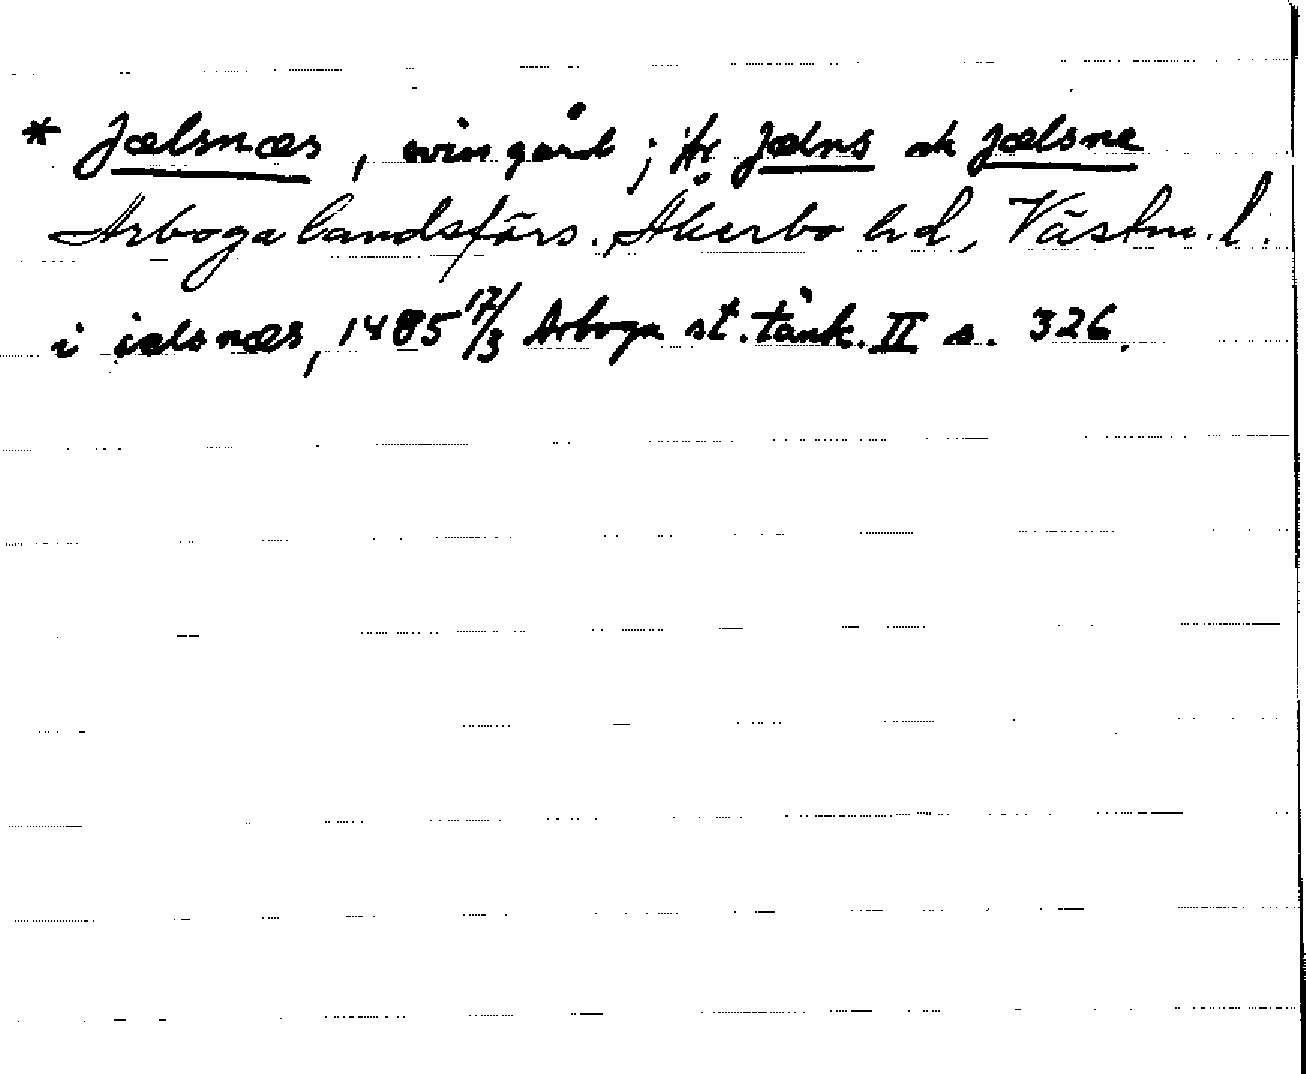 * Jælsnæs, svin gård; jfr Jælns ok Jælsne
Arboga landsförs. Åkerbo hd, Västm. l.
i iælsnæs, 1485 17/3 Arboga st. tänk. II s. 326.